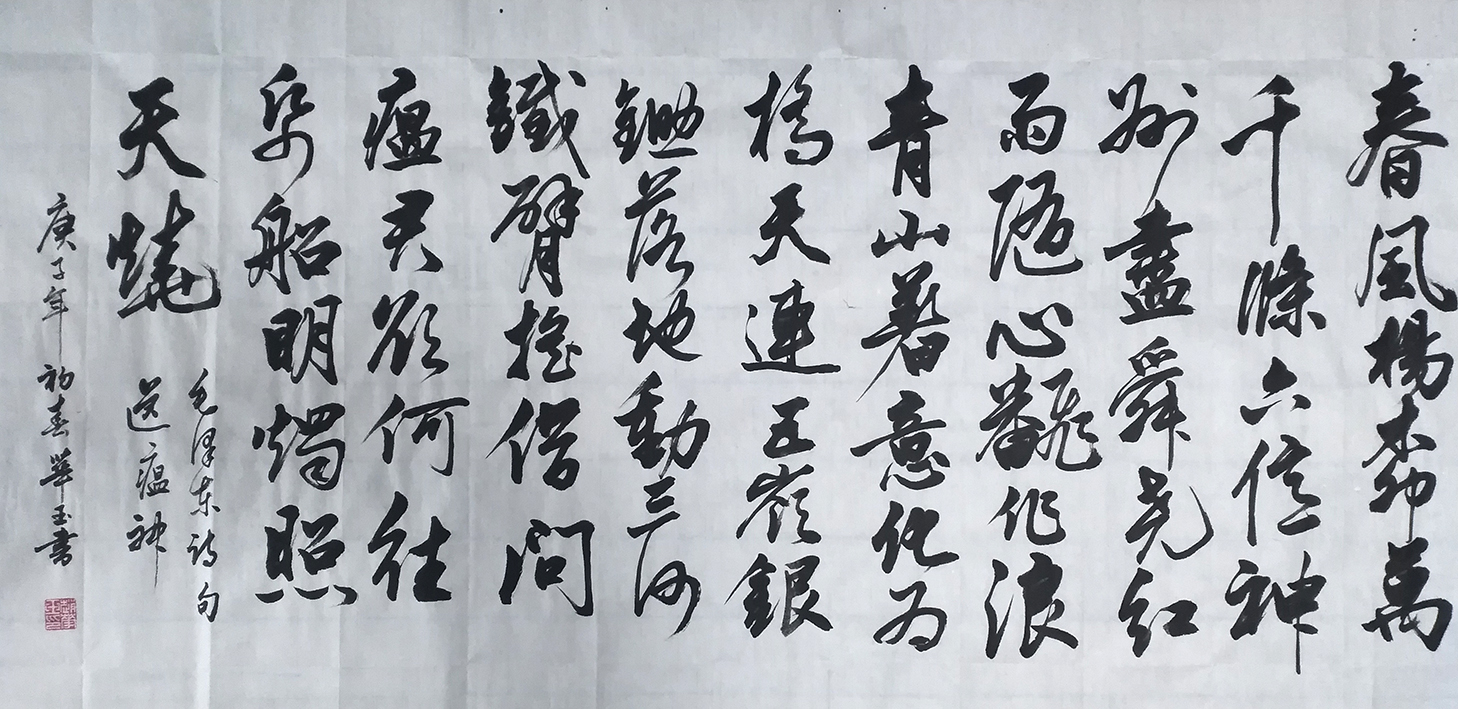 春風楊柳萬
千條六億神
州盡舜堯紅
雨隨心翻作浪
青山著意化为
橋天連五嶺銀
鋤落地動三河
鐵臂搖借問
瘟君欲何往
帋船明燭照
天燒
毛澤东詩句
送瘟神
庚子年初春華玉書